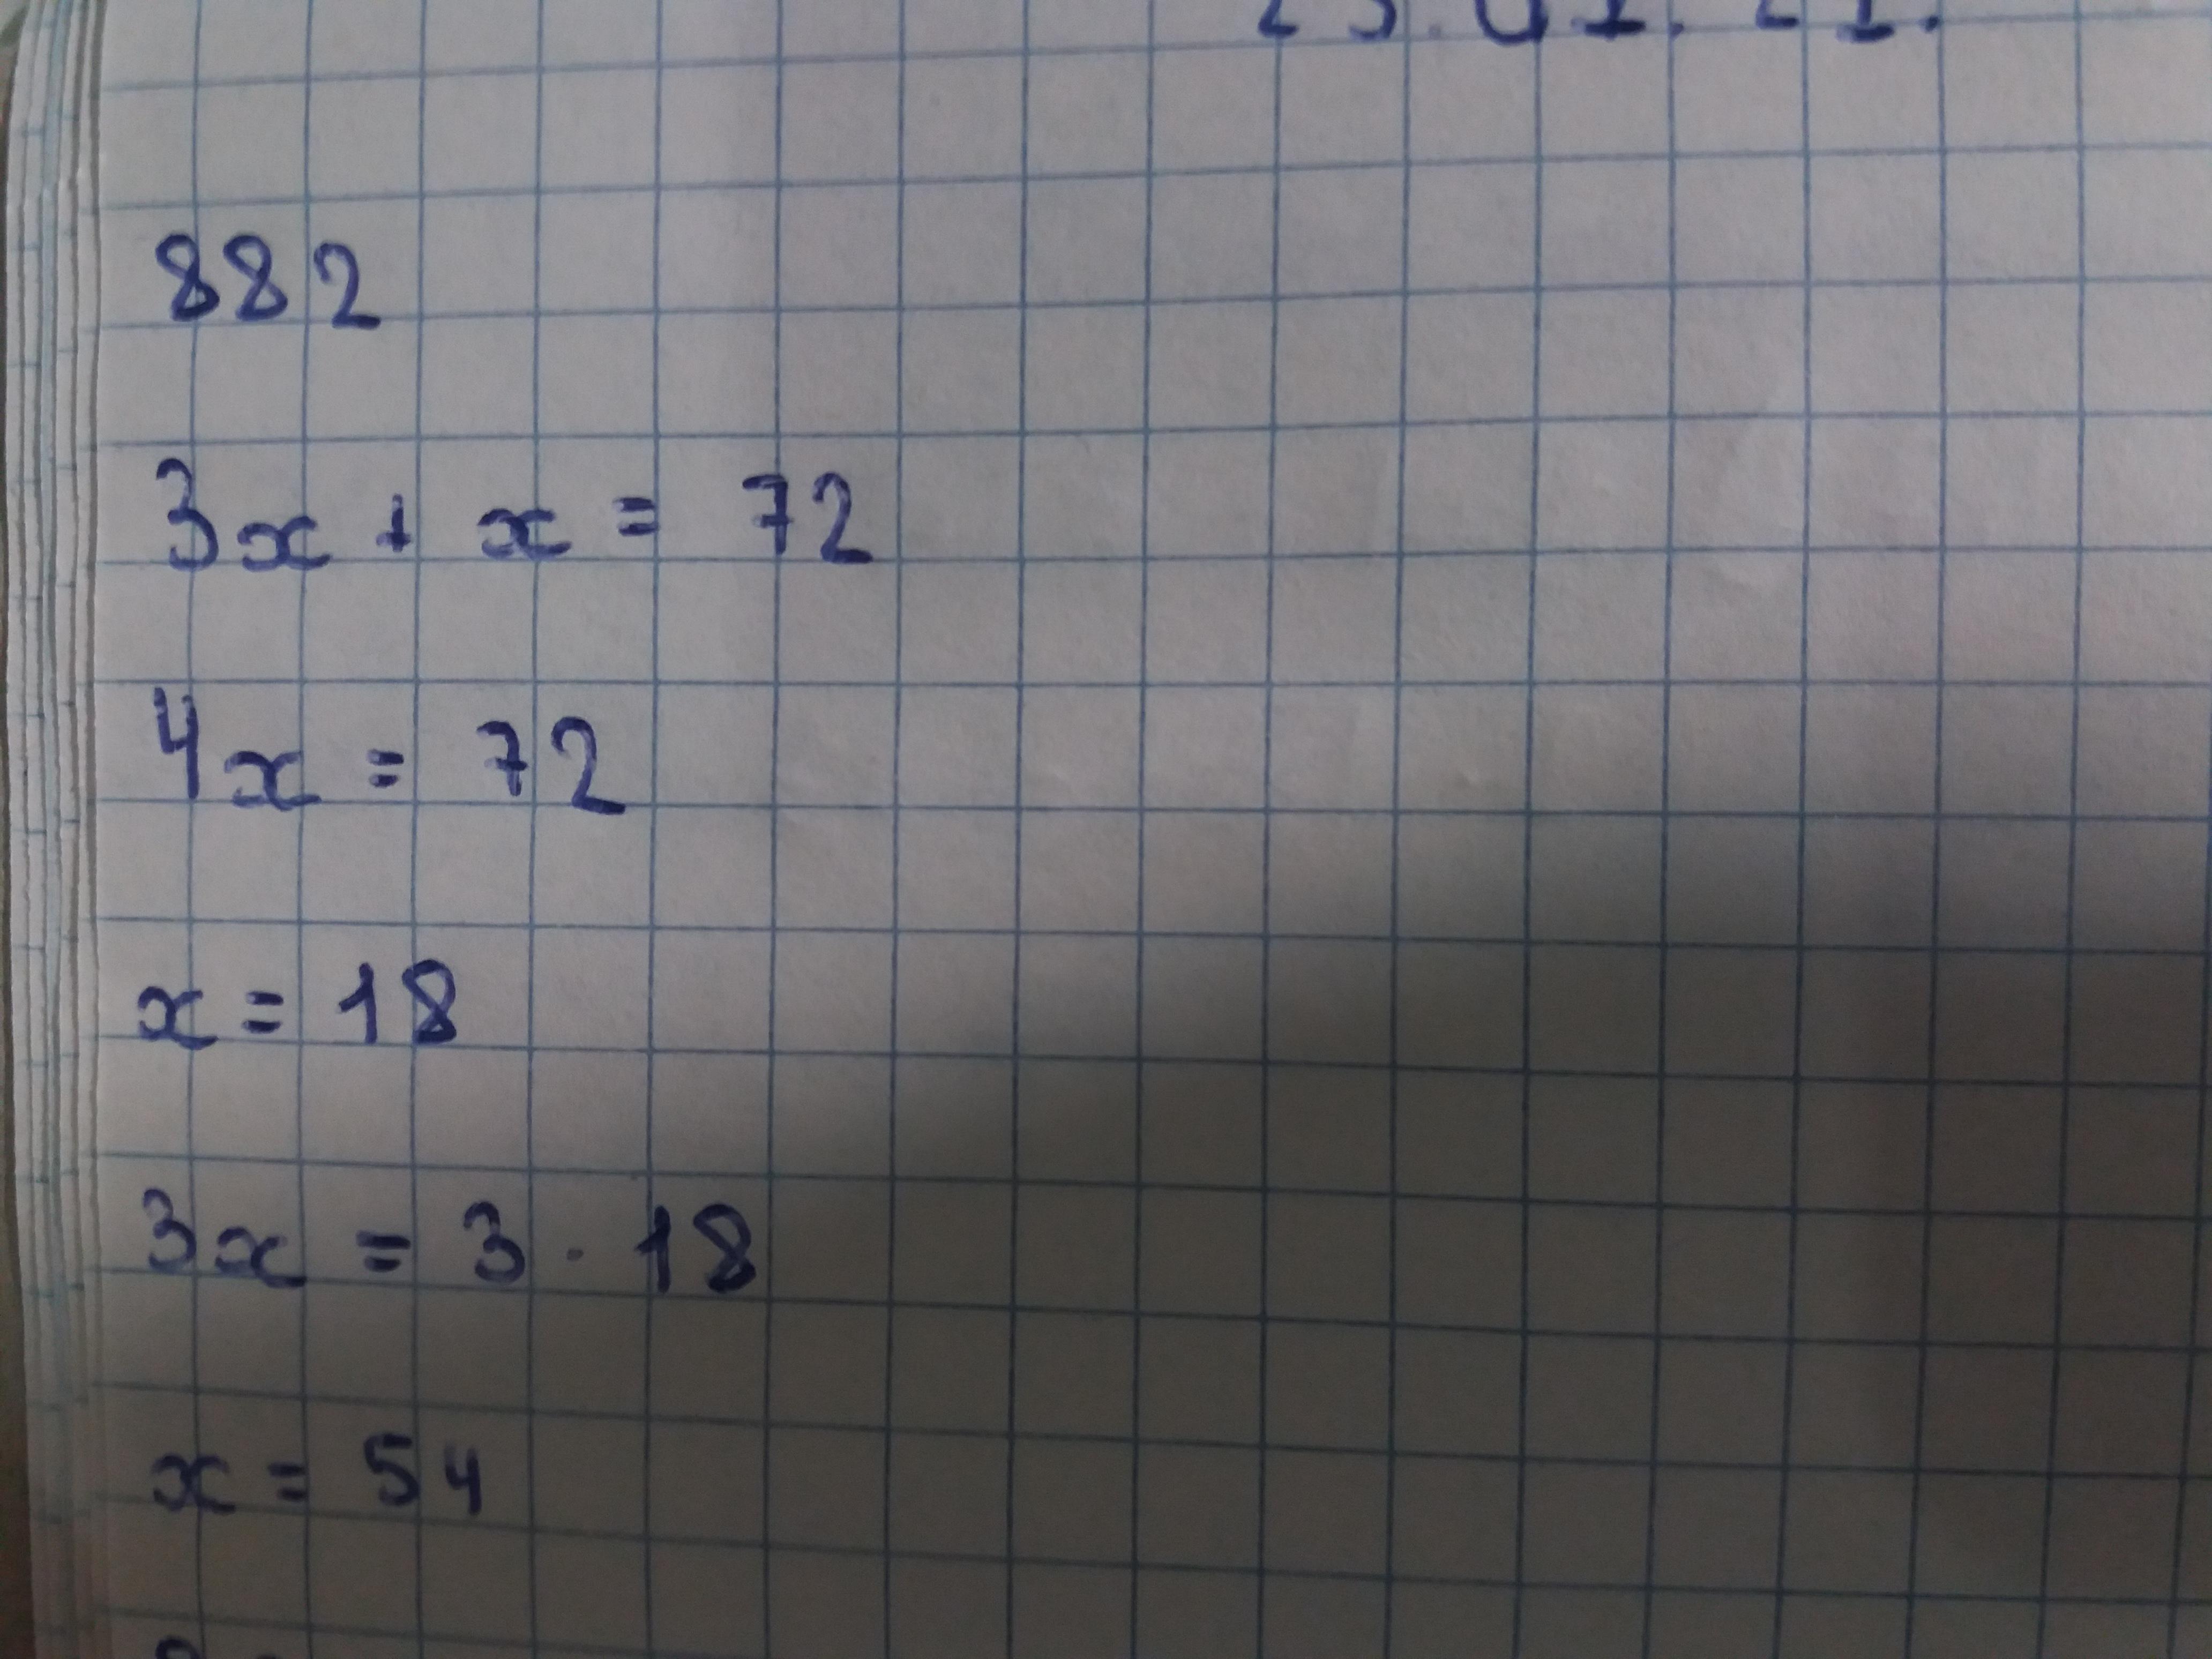 882
3x + x = 72
4x = 72
x = 18
3x = 3 · 18
x = 54